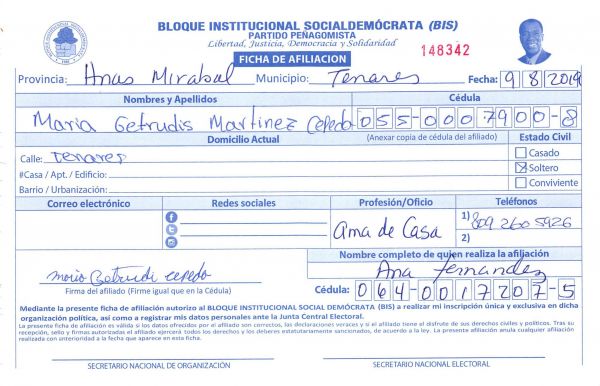 BLOQUE INSTITUCIONAL SOCIALDEMÓCRATA (BIS)
PARTIDO PEÑAGOMISTA
Libertad, Justicia, Democracia y Solidaridad
148342
FICHA DE AFILIACION
Provincia: Hnas Mirabal Municipio: Tenares Fecha: 9 8 2019
Nombres y Apellidos Cédula
Maria Getrudis Martinez Cepeda 055-0007900-8
Domicilio Actual (Anexar copia de cédula del afiliado) Estado Civil
Calle: Tenares Casado
#Casa / Apt. / Edificio: Soltero
Barrio / Urbanización: Conviviente
Correo electrónico Redes sociales Profesión/Oficio Teléfonos
Ama de Casa 1) 809 260 5926
2)
Nombre completo de quien realiza la afiliación
Ana Fernandez
Maria Getrudi cepeda
Firma del afiliado (Firme igual que en la Cédula) Cédula: 064-0017207-5
Mediante la presente ficha de afiliación autorizo al BLOQUE INSTITUCIONAL SOCIAL DEMÓCRATA (BIS) a realizar mi inscripción única y exclusiva en dicha
organización política, así como a registrar mis datos personales ante la Junta Central Electoral.
La presente ficha de afiliación es válida si los datos ofrecidos por el afiliado son correctos, las declaraciones veraces y si el afiliado tiene el disfrute de sus derechos civiles y políticos. Tras su
recepción, sello y firmas autorizadas el afiliado ejercerá todos los derechos y los deberes estatutariamente sancionados, de acuerdo a la ley. La presente afiliación anula cualquier afiliación
realizada con anterioridad a la fecha que aparece en esta ficha.
SECRETARIO NACIONAL DE ORGANIZACIÓN SECRETARIO NACIONAL ELECTORAL